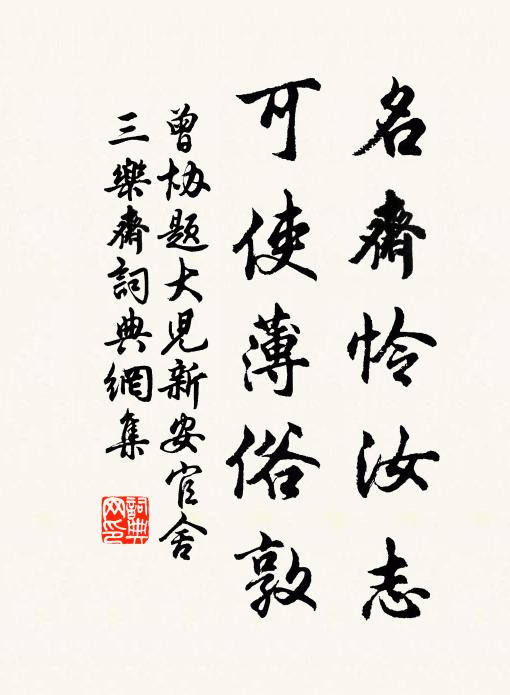 名齋怜汝志
可使薄俗敦
曾协題大児新安官舍
三樂齋詞典網集
詞典
网印